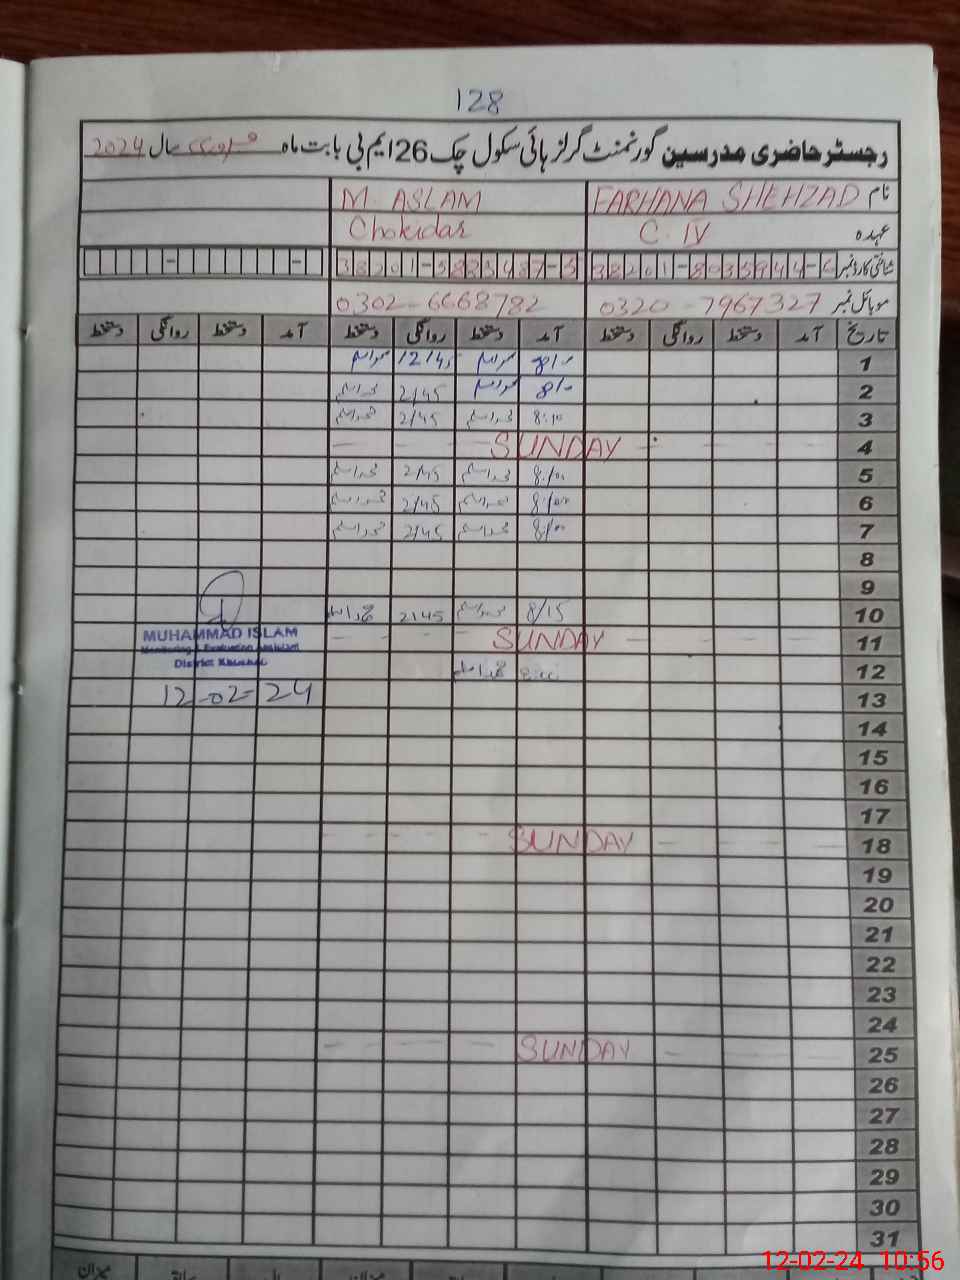 128
رجسٹر حاضری مدرسین گورنمنٹ گرلز ہائی سکول چک 26 ایم بی بابت ماہ فروری سال 2024
نام FARHANA SHEHZAD M. ASLAM
عہدہ C. IV Chokidar
شناختی کارڈ نمبر
موبائل نمبر 0320-7967327 0302-6668782
تاریخ آمد دستخط روانگی دستخط آمد دستخط روانگی دستخط آمد دستخط روانگی دستخط
1 8/- محمد اسلم 12/45 محمد اسلم
2 8/- محمد اسلم 2/45 محمد اسلم
3 8:10 محمد اسلم 2/45 محمد اسلم
4 SUNDAY
5 8:/00 محمد اسلم 2/45 محمد اسلم
6 8:/00 محمد اسلم 2/45 محمد اسلم
7 8/00 محمد اسلم 2/45 محمد اسلم
8
9
10 8/15 محمد اسلم 2145 محمد اسلم
11 SUNDAY
MUHAMMAD ISLAM
Monitoring & Evaluation Assistant
District Khushab
12 محمد اسلم
13
12-02-24
14
15
16
17
18 SUNDAY
19
20
21
22
23
24
25 SUNDAY
26
27
28
29
30
31
میزان
12-02-24 10:56